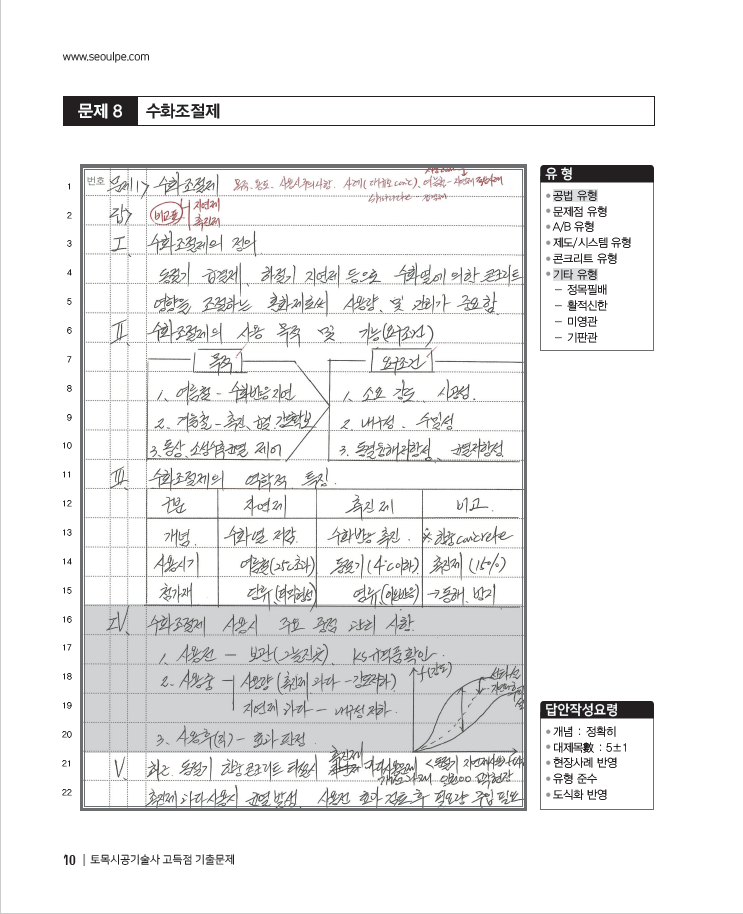 www.seoulpe.com
문제 8 수화조절제
번호
1 문제1) 수화조절제
2 답) 비교표 지연제
촉진제
3 I. 수화조절제의 정의
4 동절기 급결제, 하절기 지연제 등으로 수화열에 의한 콘크리트
5 영향을 조절하는 혼화제로써 사용량 및 관리가 중요함
6 II. 수화조절제의 사용 목적 및 기능(요구조건)
7 목적 요구조건
8 1. 여름철 - 수화반응지연 1. 소요 강도, 시공성
9 2. 겨울철 - 촉진, 2. 내구성, 수밀성
10 3. 동상, 소성수축균열 제어 3. 동결융해저항성, 균열저항성
11 III. 수화조절제의 특징.
12 구분 지연제 촉진제 비고
13 개념 수화열 저감. 수화반응 촉진. ※ 한중concrete
14 사용시기 여름철(25℃초과) 동절기(4℃이하) 촉진제 (15%)
15 첨가재 → 동해 방지
16 IV. 수화조절제 사용시 주요 중점 관리 사항.
17 1. 사용전 - 보관(그늘진곳), KS규격품확인.
18 2. 사용중 - 사용량 (촉진제 과다 - 강도저하)
19 지연제 과다 - 내구성 저하.
20 3. 사용후(타) - 효과 판정
f(강도)
21 V. 최근 동절기 한중콘크리트 타설시 촉진제
22 촉진제 과다사용시 균열 발생. 사용전 효과 검토 후 필요량 주입 필요
유 형
• 공법 유형
• 문제점 유형
• A/B 유형
• 제도/시스템 유형
• 콘크리트 유형
• 기타 유형
– 정목필배
– 활적신한
– 미영관
– 기판관
답안작성요령
• 개념 : 정확히
• 대제목數 : 5±1
• 현장사례 반영
• 유형 준수
• 도식화 반영
10 | 토목시공기술사 고득점 기출문제